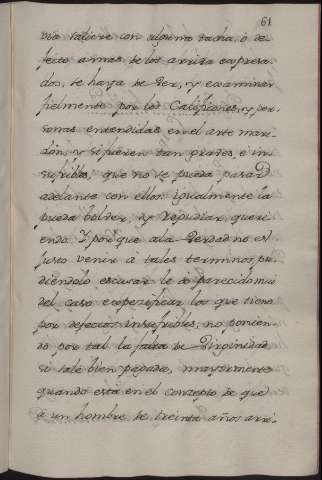 61
via saliere con alguna tacha, o de-
fecto a mas de los arriva expresa-
dos, se haya de ver, y examinar
fielmente por los Calefiones, y per-
sonas entendidas en el arte mari-
dón, y si fueren tan graves, e in-
sufribles, que no se pueda pasar
adelante con ellos: igualmente la
pueda bolver, y repudiar, queri-
endo. Y por que a la verdad no es
justo venir á tales terminos, pu-
diendolo escusar le á parecido mui
del caso expecificar los que tiene
por defectos insufribles, no ponien-
do por tal la falta de Virginidad
si sale bien pagada, mayormente
quando está en el concepto de que
á un hombre de treinta años arri-